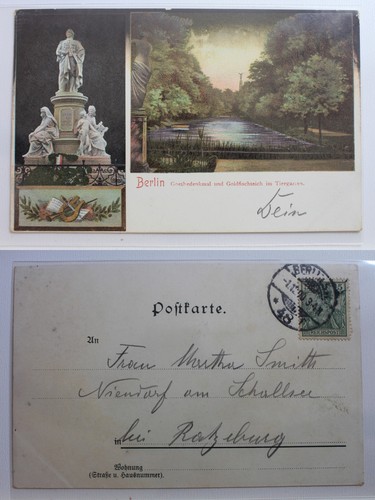 Berlin Goethedenkmal und Goldfischteich im Tiergarten.
Dein
BERLIN
* 48
Postkarte.
An
Frau Martha Smith
Niendorf am Schallsee
in bei Ratzeburg
Wohnung
(Straße u. Hausnummer).